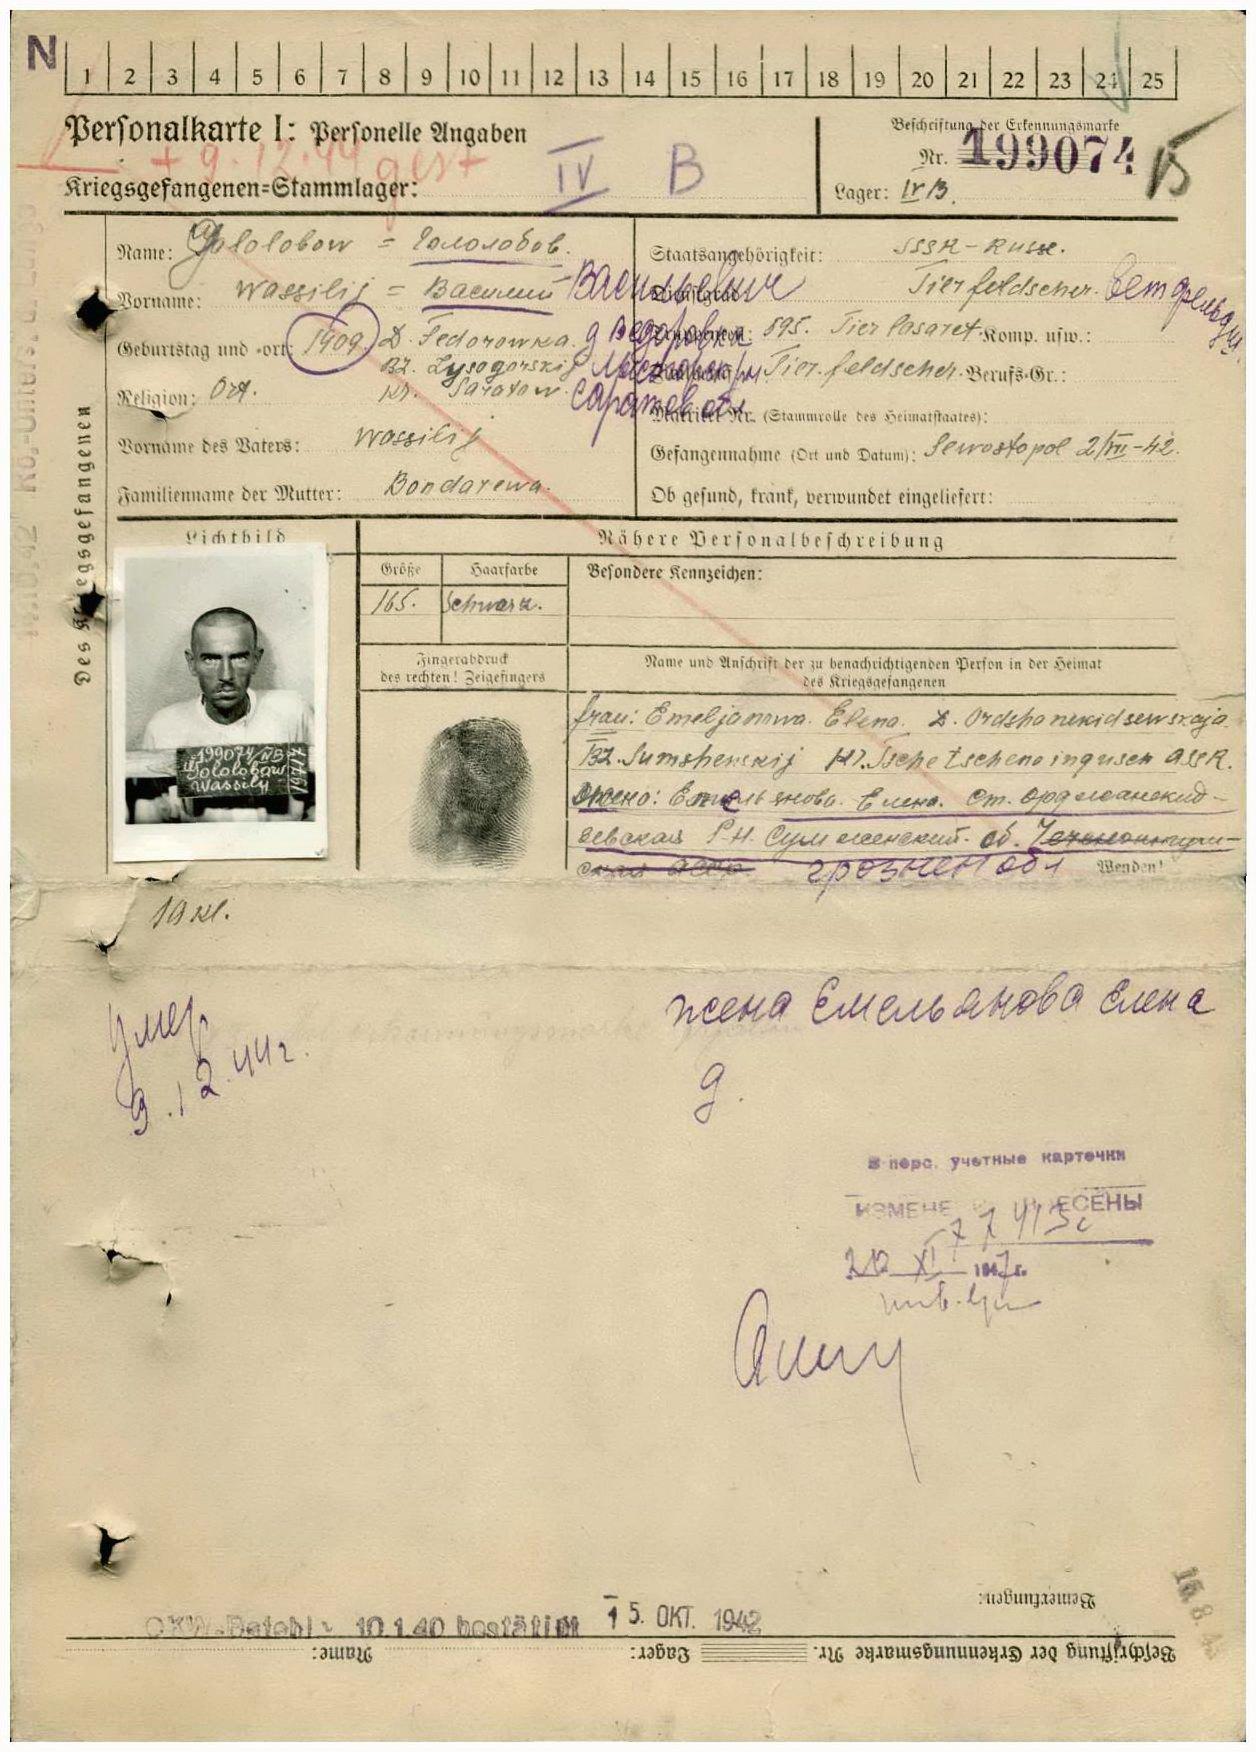 N
1 2 3 4 5 6 7 8 9 10 11 12 13 14 15 16 17 18 19 20 21 22 23 24 25
Personalkarte I: Personelle Angaben
+ 9.12.44 gest
Kriegsgefangenen=Stammlager: IV B
Beschriftung der Erkennungsmarke
Nr. 199074
Lager: IV B.
Des Kriegsgefangenen
Name: Gololobow = Гололобов.
Vorname: Wassilij = Василий Васильевич
Geburtstag und -ort: 1909. D. Fedorowka. д Федоровка
BZ. Lysogorskij
Religion: Ort. Kr. Saratow. Саратов обл
Vorname des Vaters: Wassilij
Familienname der Mutter: Bondarewa.
Staatsangehörigkeit: SSSR - Russe.
Dienstgrad: Tierfeldscher. Ветфельдш.
Truppenteil: 895. Tier lasaret. Komp. usw.:
Tier. feldscher. Berufs-Gr.:
Matrikel Nr. (Stammrolle des Heimatstaates):
Gefangennahme (Ort und Datum): Sewostopol 2/VII-42.
Ob gesund, krank, verwundet eingeliefert:
Lichtbild
Nähere Personalbeschreibung
Größe Haarfarbe Besondere Kennzeichen:
165. Schwarz.
Fingerabdruck
des rechten! Zeigefingers
Name und Anschrift der zu benachrichtigenden Person in der Heimat
des Kriegsgefangenen
199074/IVB
Gololobow
Wassily
frau: Emeljanowa. Elena. D. Ordshonekidsewskaja
BZ. Sumshenskij Kr. Tschetscheno ingusch ASSR.
Жена: Емельянова. Елена. ст. Орджоникид-
зевская Р-Н. Сунженский. об. Чеченоингуш-
ская АССР грознен обл Wenden!
10 кл.
умер
9.12.44г.
жена Емельянова Елена
д.
В перс. учетные карточки
ИЗМЕНЕ ЕСЕНЫ
20 XI 1947г.
OKW.-Befehl v. 10.1.40 bestätigt
15. OKT. 1942
Bemerkungen:
Beschriftung der Erkennungsmarke Nr. Lager: Name: